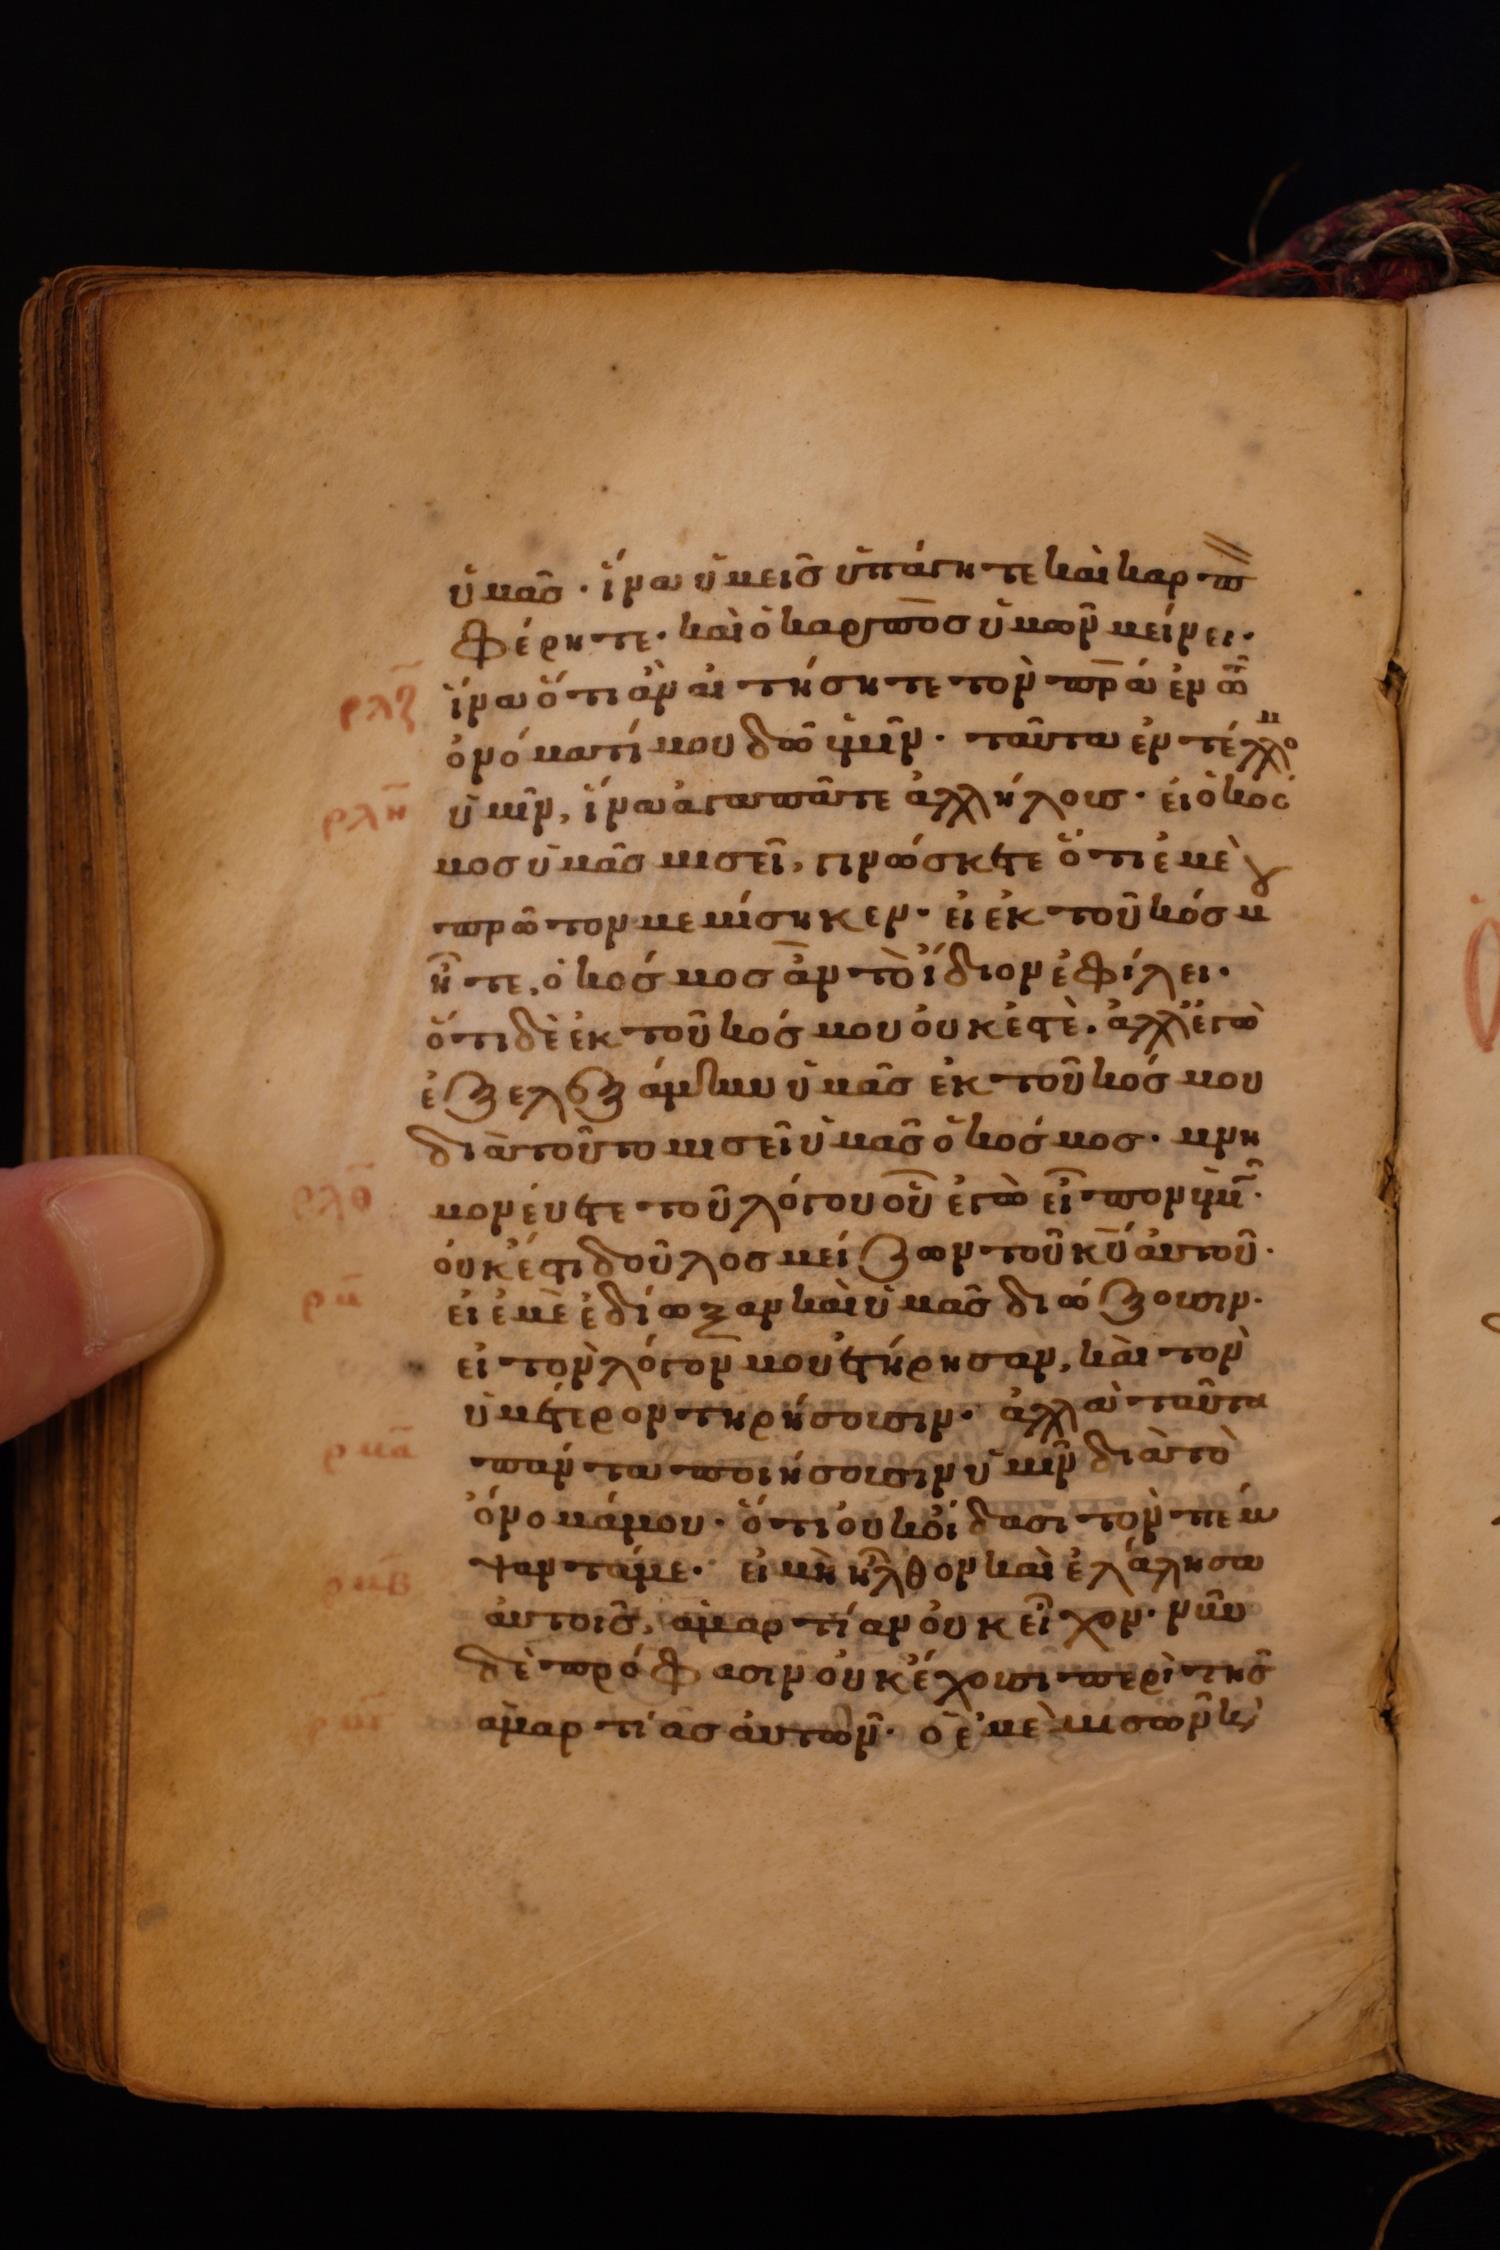 ὑμᾶς · ἵνα ὑμεῖς ὑπάγητε καὶ καρπ
φέρητε · καὶ ὁ καρπὸς ὑμῶν μείνει ·
ρλζ ἵνα ὅτι ἂν αἰτήσητε τὸν πρ̅α ἐν τῶ
ὀνόματί μου δῶ ὑμῖν · ταῦτα ἐντέλλομ
ρλη ὑμῖν, ἵνα ἀγαπᾶτε ἀλλήλους · εἰ ὁ κόσ
μος ὑμᾶς μισεῖ, γινώσκετε ὅτι ἐμὲ
πρῶτον μεμίσηκεν · εἰ ἐκ τοῦ κόσμου
ἦτε, ὁ κόσμος ἂν τὸ ἴδιον ἐφίλει ·
ὅτι δὲ ἐκ τοῦ κόσμου οὐκ ἐστὲ · ἀλλ' ἐγὼ
ἐξελεξάμην ὑμᾶς ἐκ τοῦ κόσμου
διατοῦτο μισεῖ ὑμᾶς ὁ κόσμος · μνη
ρλθ μονεύετε τοῦ λόγου οὗ ἐγὼ εἶπον ὑμῖν ·
οὐκ ἔστι δοῦλος μείζων τοῦ κ̅υ αὐτοῦ ·
ρμ εἰ ἐμὲ ἐδίωξαν καὶ ὑμᾶς διώξουσιν ·
εἰ τὸν λόγον μου ἐτήρησαν, καὶ τὸν
ὑμέτερον τηρήσουσιν · ἀλλὰ ταῦτα
ρμα πάντα ποιήσουσιν ὑμῖν διὰ τὸ
ὄνομά μου · ὅτι οὐκ οἴδασι τὸν πέμ
ψαντά με · εἰ μὴ ἦλθον καὶ ἐλάλησα
ρμβ αὐτοῖς, ἁμαρτίαν οὐκ εἶχον · νῦν
δὲ πρόφασιν οὐκ ἔχουσι περὶ τῆς
ρμγ ἁμαρτίας αὐτῶν · ὁ ἐμὲ μισῶν κ